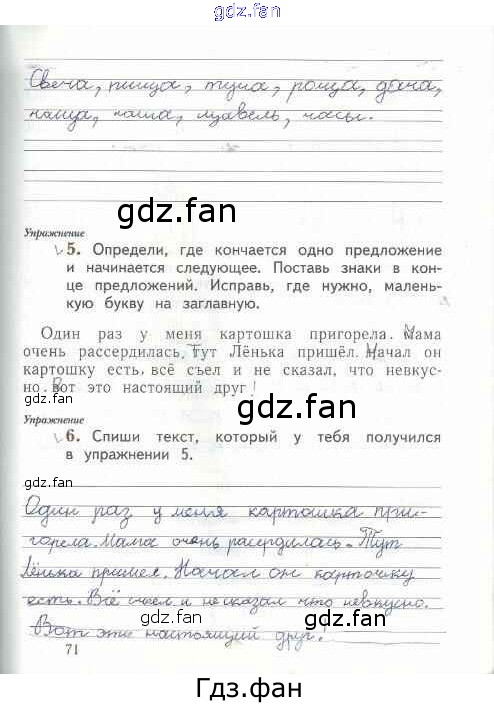 gdz.fan
Свеча, пища, туча, роща, дача,
чаща, чаша, щавель, часы.
gdz.fan
Упражнение
5. Определи, где кончается одно предложение
и начинается следующее. Поставь знаки в кон-
це предложений. Исправь, где нужно, малень-
кую букву на заглавную.
gdz.fan
Один раз у меня картошка пригорела. Мама
очень рассердилась. Тут Лёнька пришёл. Начал он
картошку есть, всё съел и не сказал, что невкус-
но. Вот это настоящий друг!
gdz.fan
Упражнение
6. Спиши текст, который у тебя получился
в упражнении 5.
gdz.fan
Один раз у меня картошка при-
горела. Мама очень рассердилась. Тут
Лёнька пришел. Начал он карточку
есть. Всё съел и не сказал что невкусно.
Вот это настоящий друг!
gdz.fan
71
Гдз.фан